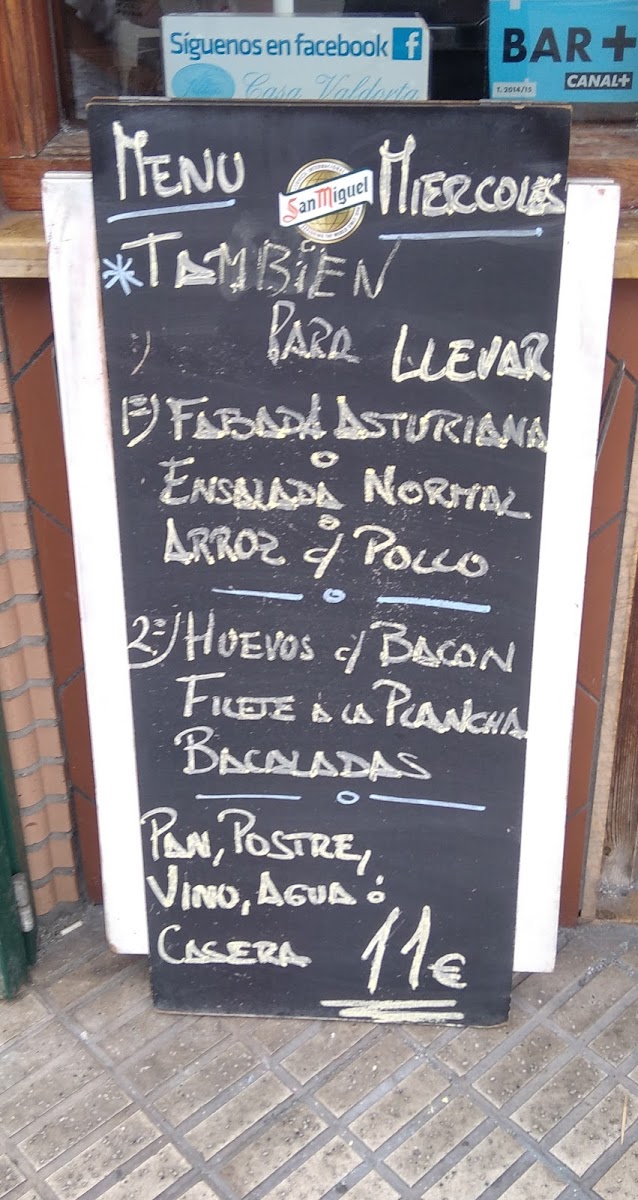 Síguenos en facebook f
Casa Valdorta
BAR+
CANAL+
T. 2014/15
MENU
San Miguel
MIERCOLES
* TAMBIEN
PARA LLEVAR
1º) FABADA ASTURIANA
o
ENSALADA NORMAL
o
ARROZ c/ POLLO
2º) HUEVOS c/ BACON
FILETE A LA PLANCHA
BACALADAS
PAN, POSTRE,
VINO, AGUA ó
CASERA 11€